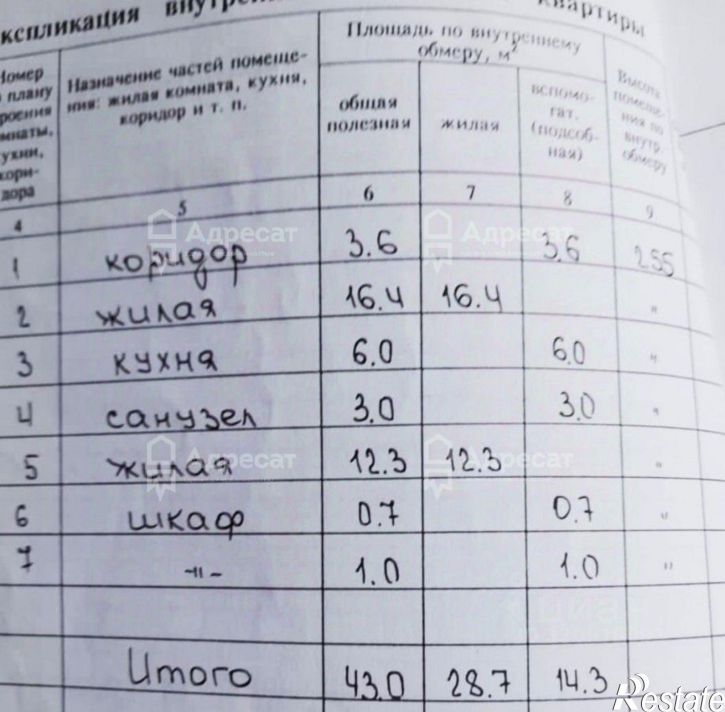 кспликация внутрен квартиры
Номер
плану
роения
мнаты,
ухни,
кори-
дора
Назначение частей помеще-
ния: жилая комната, кухня,
коридор и т. п.
Площадь по внутреннему
обмеру, м²
общая
полезная
жилая
вспомо-
гат.
(подсоб-
ная)
Высота
помеще-
ния по
внутр.
обмеру
4 5 6 7 8 9
1 коридор 3.6 3.6 255
2 жилая 16.4 16.4 "
3 кухня 6.0 6.0 "
4 санузел 3.0 3.0 "
5 жилая 12.3 12.3 "
6 шкаф 0.7 0.7 "
7 -"- 1.0 1.0 "
Итого 43.0 28.7 14.3
Адресат
Адресат
Адресат
Адресат
Restate